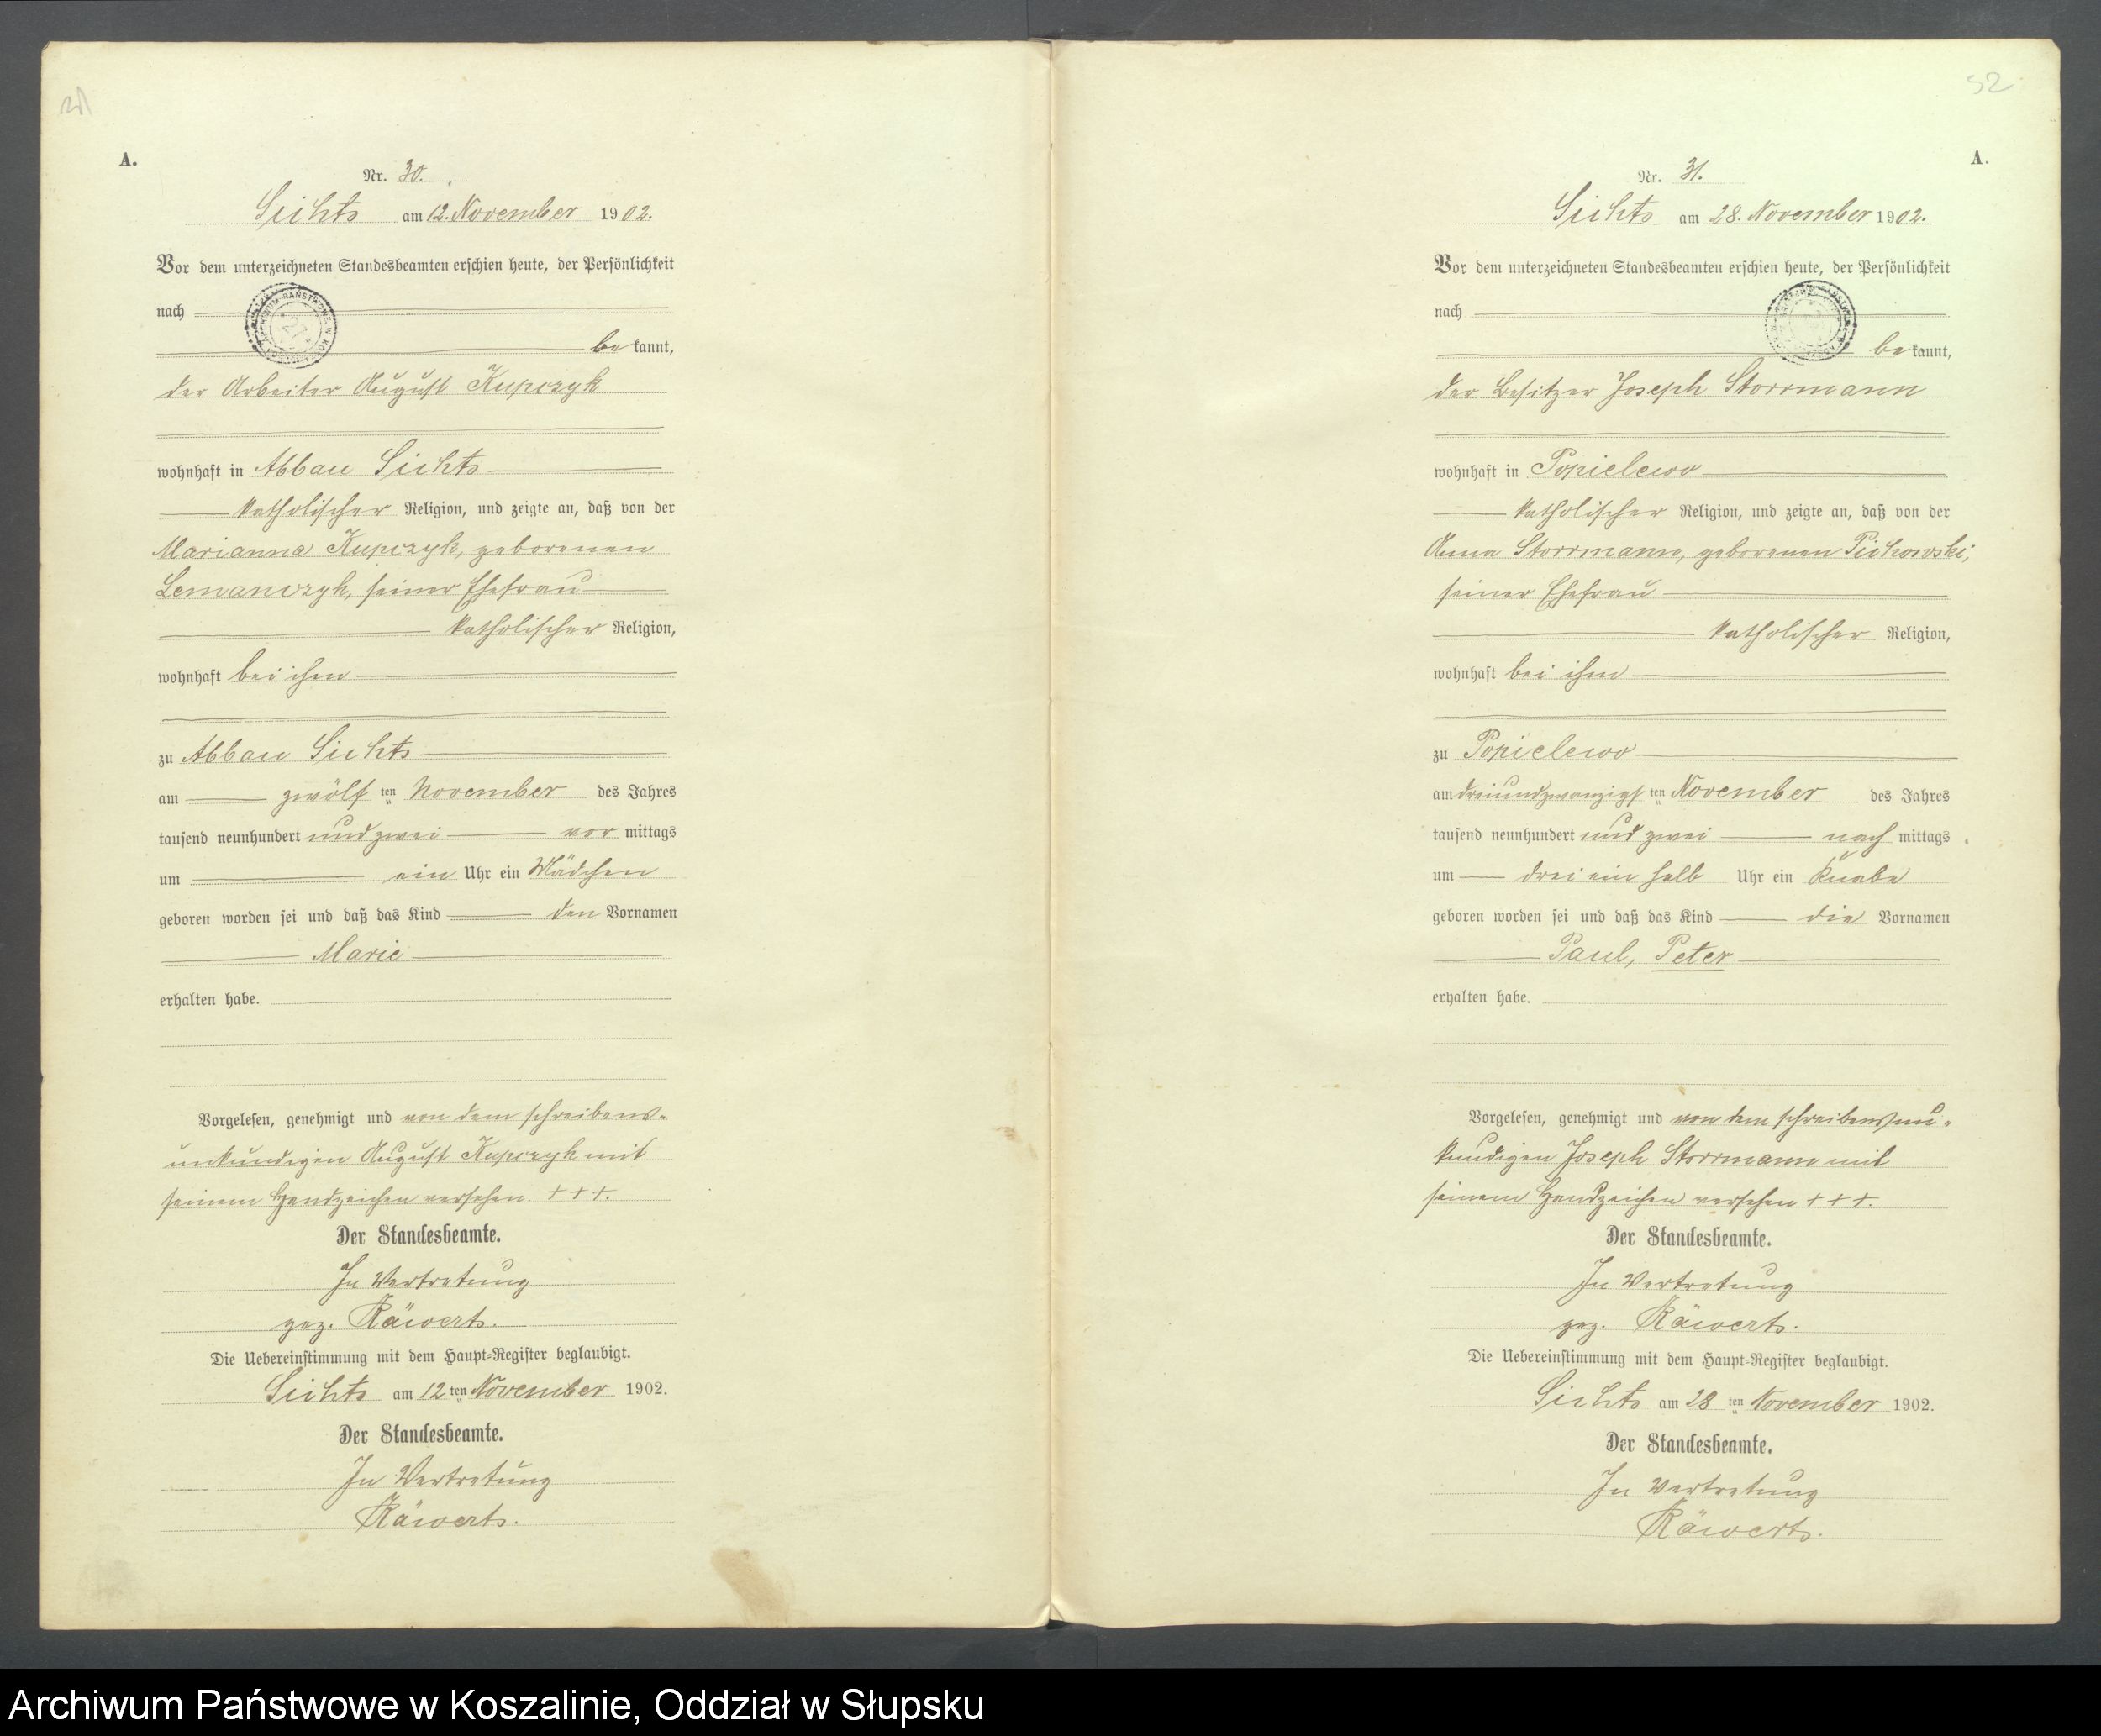 A.
Nr. 30.
Sichts am 12. November 1902.
Vor dem unterzeichneten Standesbeamten erschien heute, der Persönlichkeit
nach
be kannt,
der Arbeiter August Kupczyk
wohnhaft in Abbau Sichts
katholischer Religion, und zeigte an, daß von der
Marianna Kupczyk, geborenen
Lemanczyk, seiner Ehefrau
katholischer Religion,
wohnhaft bei ihm
zu Abbau Sichts
am zwölf ten November des Jahres
tausend neunhundert und zwei vor mittags
um ein Uhr ein Mädchen
geboren worden sei und daß das Kind den Vornamen
Marie
erhalten habe.
Vorgelesen, genehmigt und von dem schreibens-
unkundigen August Kupczyk mit
seinem Handzeichen versehen. +++.
Der Standesbeamte.
In Vertretung
gez. Räwerts.
Die Uebereinstimmung mit dem Haupt-Register beglaubigt.
Sichts am 12 ten November 1902.
Der Standesbeamte.
In Vertretung
Räwerts.
52
A.
Nr. 31.
Sichts am 28. November 1902.
Vor dem unterzeichneten Standesbeamten erschien heute, der Persönlichkeit
nach
be kannt,
der Besitzer Joseph Storrmann
wohnhaft in Popielewo
katholischer Religion, und zeigte an, daß von der
Anna Storrmann, geborenen Pichowski,
seiner Ehefrau
katholischer Religion,
wohnhaft bei ihm
zu Popielewo
am dreiundzwanzigs ten November des Jahres
tausend neunhundert und zwei nach mittags
um drei ein halb Uhr ein Knabe
geboren worden sei und daß das Kind die Vornamen
Paul, Peter
erhalten habe.
Vorgelesen, genehmigt und von dem schreibensun-
kundigen Joseph Storrmann mit
seinem Handzeichen versehen +++.
Der Standesbeamte.
In Vertretung
gez. Räwerts.
Die Uebereinstimmung mit dem Haupt-Register beglaubigt.
Sichts am 28 ten November 1902.
Der Standesbeamte.
In Vertretung
Räwerts.
Archiwum Państwowe w Koszalinie, Oddział w Słupsku